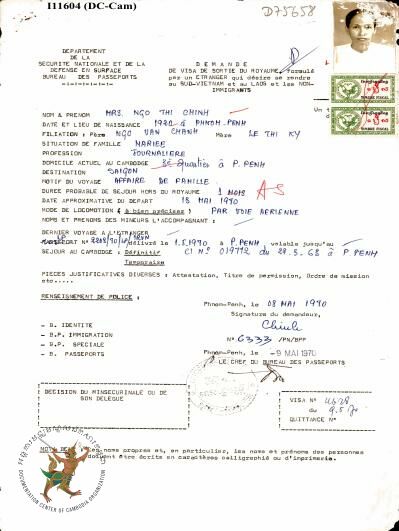 I11604 (DC-Cam)
D75658
DEPARTEMENT
DE LA
SECURITE NATIONALE ET DE LA
DEFENSE EN SURFACE
BUREAU DES PASSEPORTS
DEMANDE
DE VISA DE SORTIE DU ROYAUME, formulé
par un ETRANGER qui désire se rendre
au SUD-VIETNAM et au LAOS et les NON-
IMMIGRANTS
TIMBRE FISCAL
TIMBRE FISCAL
NOM & PRENOM MRS. NGO THI CHINH
DATE ET LIEU DE NAISSANCE 1920 à PHNOM-PENH
FILIATION : Père NGO VAN CHANH Mère LE THI KY
SITUATION DE FAMILLE MARIEE
PROFESSION JOURNALIERE
DOMICILE ACTUEL AU CAMBODGE 3è Quartier à P. PENH
DESTINATION SAIGON
MOTIF DU VOYAGE AFFAIRE DE FAMILLE
DUREE PROBABLE DE SEJOUR HORS DU ROYAUME 1 MOIS
DATE APPROXIMATIVE DU DEPART 18 MAI 1970
MODE DE LOCOMOTION (à bien préciser) PAR VOIE AERIENNE
NOMS ET PRENOMS DES MINEURS L'ACCOMPAGNANT :
DERNIER VOYAGE A L'ETRANGER
PASSEPORT N° délivré le 1.5.1970 à P. PENH, valable jusqu'au
SEJOUR AU CAMBODGE : Définitif CI N° 019772 du 29.5.68 à P. PENH
Temporaire
PIECES JUSTIFICATIVES DIVERSES : Attestation, Titre de permission, Ordre de mission
etc.....
RENSEIGNEMENT DE POLICE :
Phnom-Penh, le 08 MAI 1970
Signature du demandeur,
Chinh
- B. IDENTITE
- B.P. IMMIGRATION
- B.P. SPECIALE
- B. PASSEPORTS
N° 6333 /PN/BPP
Phnom-Penh, le -9 MAI 1970
LE CHEF DU BUREAU DES PASSEPORTS
DECISION DU MINSECURINALE OU DE
SON DELEGUE
VISA N° 4628
du 9.5.70
QUITTANCE N°
NOTA BENE : Les noms propres et, en particulier, les noms et prénoms des personnes
doivent être écrits en caractères calligraphié ou d'imprimerie.
DOCUMENTATION CENTER OF CAMBODIA ORGANIZATION